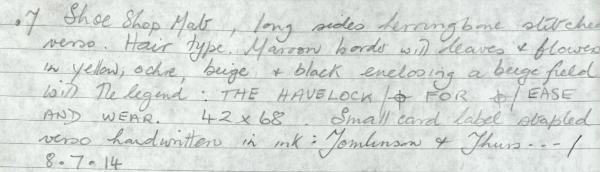 .7 Shoe Shop Mat, long sides herringbone stitched
verso. Hair type. Maroon border with leaves & flowers
in yellow, ochre, beige & black enclosing a beige field
with the legend: THE HAVELOCK / ϕ FOR ϕ / EASE
AND WEAR. 42 x 68. Small card label stapled
verso handwritten in ink: Tomlinson & Thurs---/
8.7.14